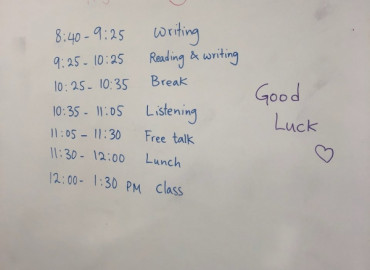 8:40 - 9:25 Writing
9:25 - 10:25 Reading & writing
10:25 - 10:35 Break
10:35 - 11:05 Listening
11:05 - 11:30 Free talk
11:30 - 12:00 Lunch
12:00 - 1:30 PM Class
Good
Luck